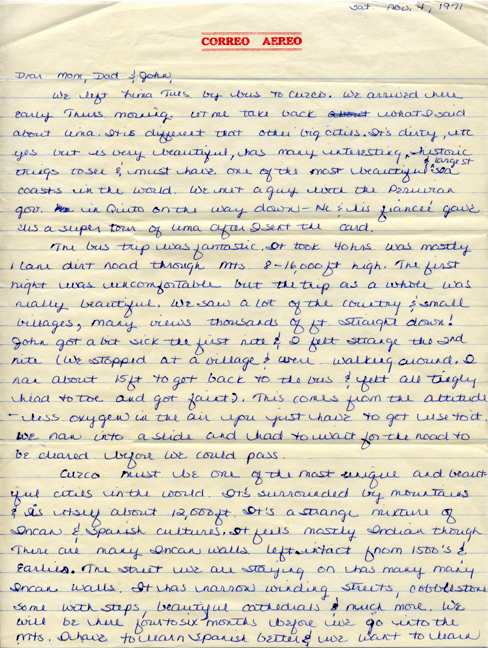 Sat. Nov. 4, 1971
CORREO AEREO
Dear Mom, Dad & John,
We left Lima Tues by bus to Cuzco. We arrived here
early Thurs morning. Let me take back about what I said
about Lima. It is different that other big cities. It's dirty, etc
yes but is very beautiful, has many interesting, historic
things to see & must have one of the most beautiful & largest sea
coasts in the world. We met a guy with the Peruvian
gov. in Quito on the way down - He & his fiancée gave
us a super tour of Lima after I sent the card.
The bus trip was fantastic. It took 40 hrs was mostly
1 lane dirt road through Mts. 8-16,000 ft high. The first
night was uncomfortable but the trip as a whole was
really beautiful. We saw a lot of the country & small
villages, many views thousands of ft. straight down!
John got a bit sick the first nite & I felt strange the 2nd
nite (We stopped at a village & were walking around. I
ran about 15 ft to get back to the bus & felt all tingly
head to toe and got faint). This comes from the altitude
- less oxygen in the air you just have to get use to it.
We ran into a slide and had to wait for the road to
be cleared before we could pass.
Cuzco must be one of the most unique and beaut-
iful cities in the world. It's surrounded by mountains
& is itself about 12,000 ft. It's a strange mixture of
Incan & Spanish cultures. It feels mostly Indian though
There are many Incan walls left intact from 1500's &
Earlier. The street we are staying on has many many
Incan walls. It has narrow winding streets, cobblestone
some with steps, beautiful cathedrals & much more. We
will be here four to six months before we go into the
Mts. I have to learn Spanish better & we want to learn